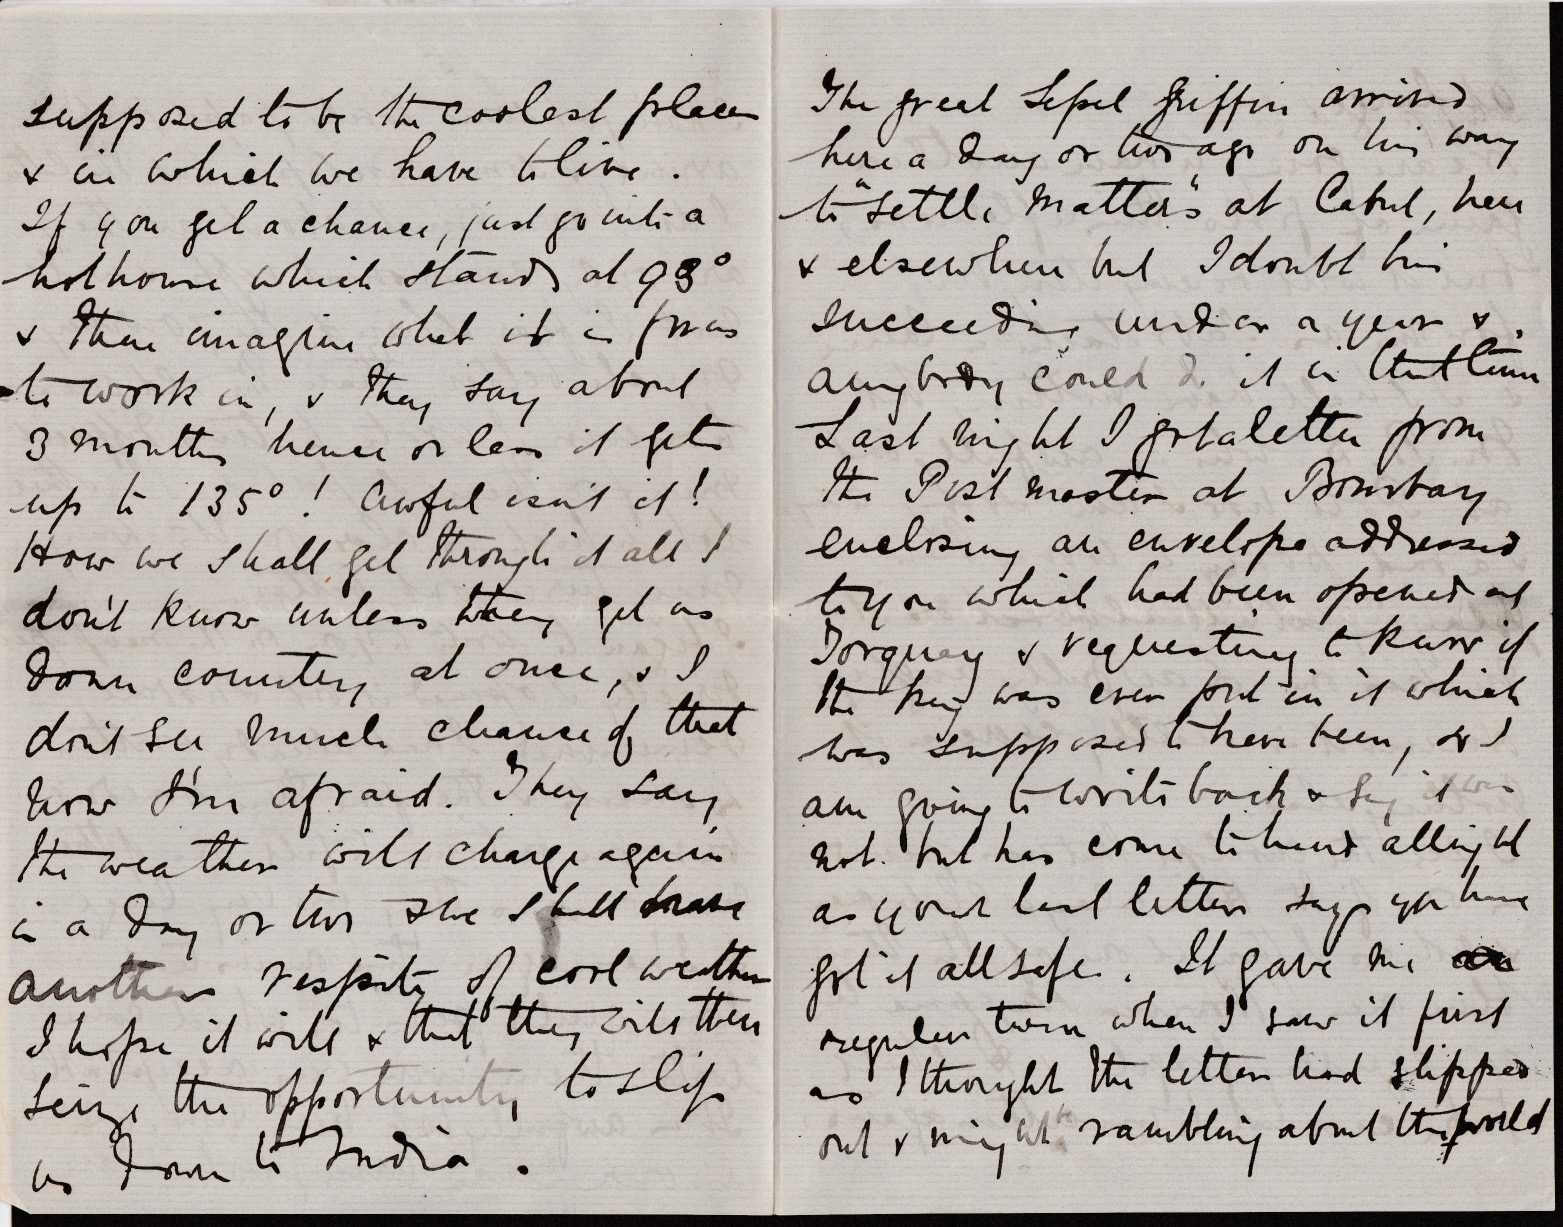 supposed to be the coolest places
& in which we have to live.
If you get a chance, just go into a
hothouse which stands at 98°
& then imagine what it is for us
to work in, & they say about
3 months hence or less it gets
up to 135°! Awful isn't it!
How we shall get through it all I
don't know unless they get us
down country at once, & I
don't see much chance of that
now I'm afraid. They say
the weather will change again
in a day or two & we shall have
another respite of cool weather
I hope it will & that they will then
seize the opportunity to slip
us down to India.
The great Lepel Griffin arrived
here a day or two ago on his way
to "settle matters" at Cabul, here
& elsewhere but I doubt his
succeeding under a year &
anybody could do it in that time
Last night I got a letter from
the Post master at Bombay
enclosing an envelope addressed
to you which had been opened at
Torquay & requesting to know if
the key was ever put in it which
was supposed to have been, & I
am going to write back & say it was
not. but has come to hand allright
as your last letter says you have
got it all safe. It gave me a
regular turn when I saw it first
as I thought the letter had slipped
out & might be rambling about the world